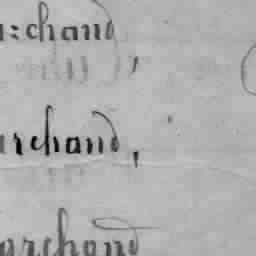 archand,
archand,
archand